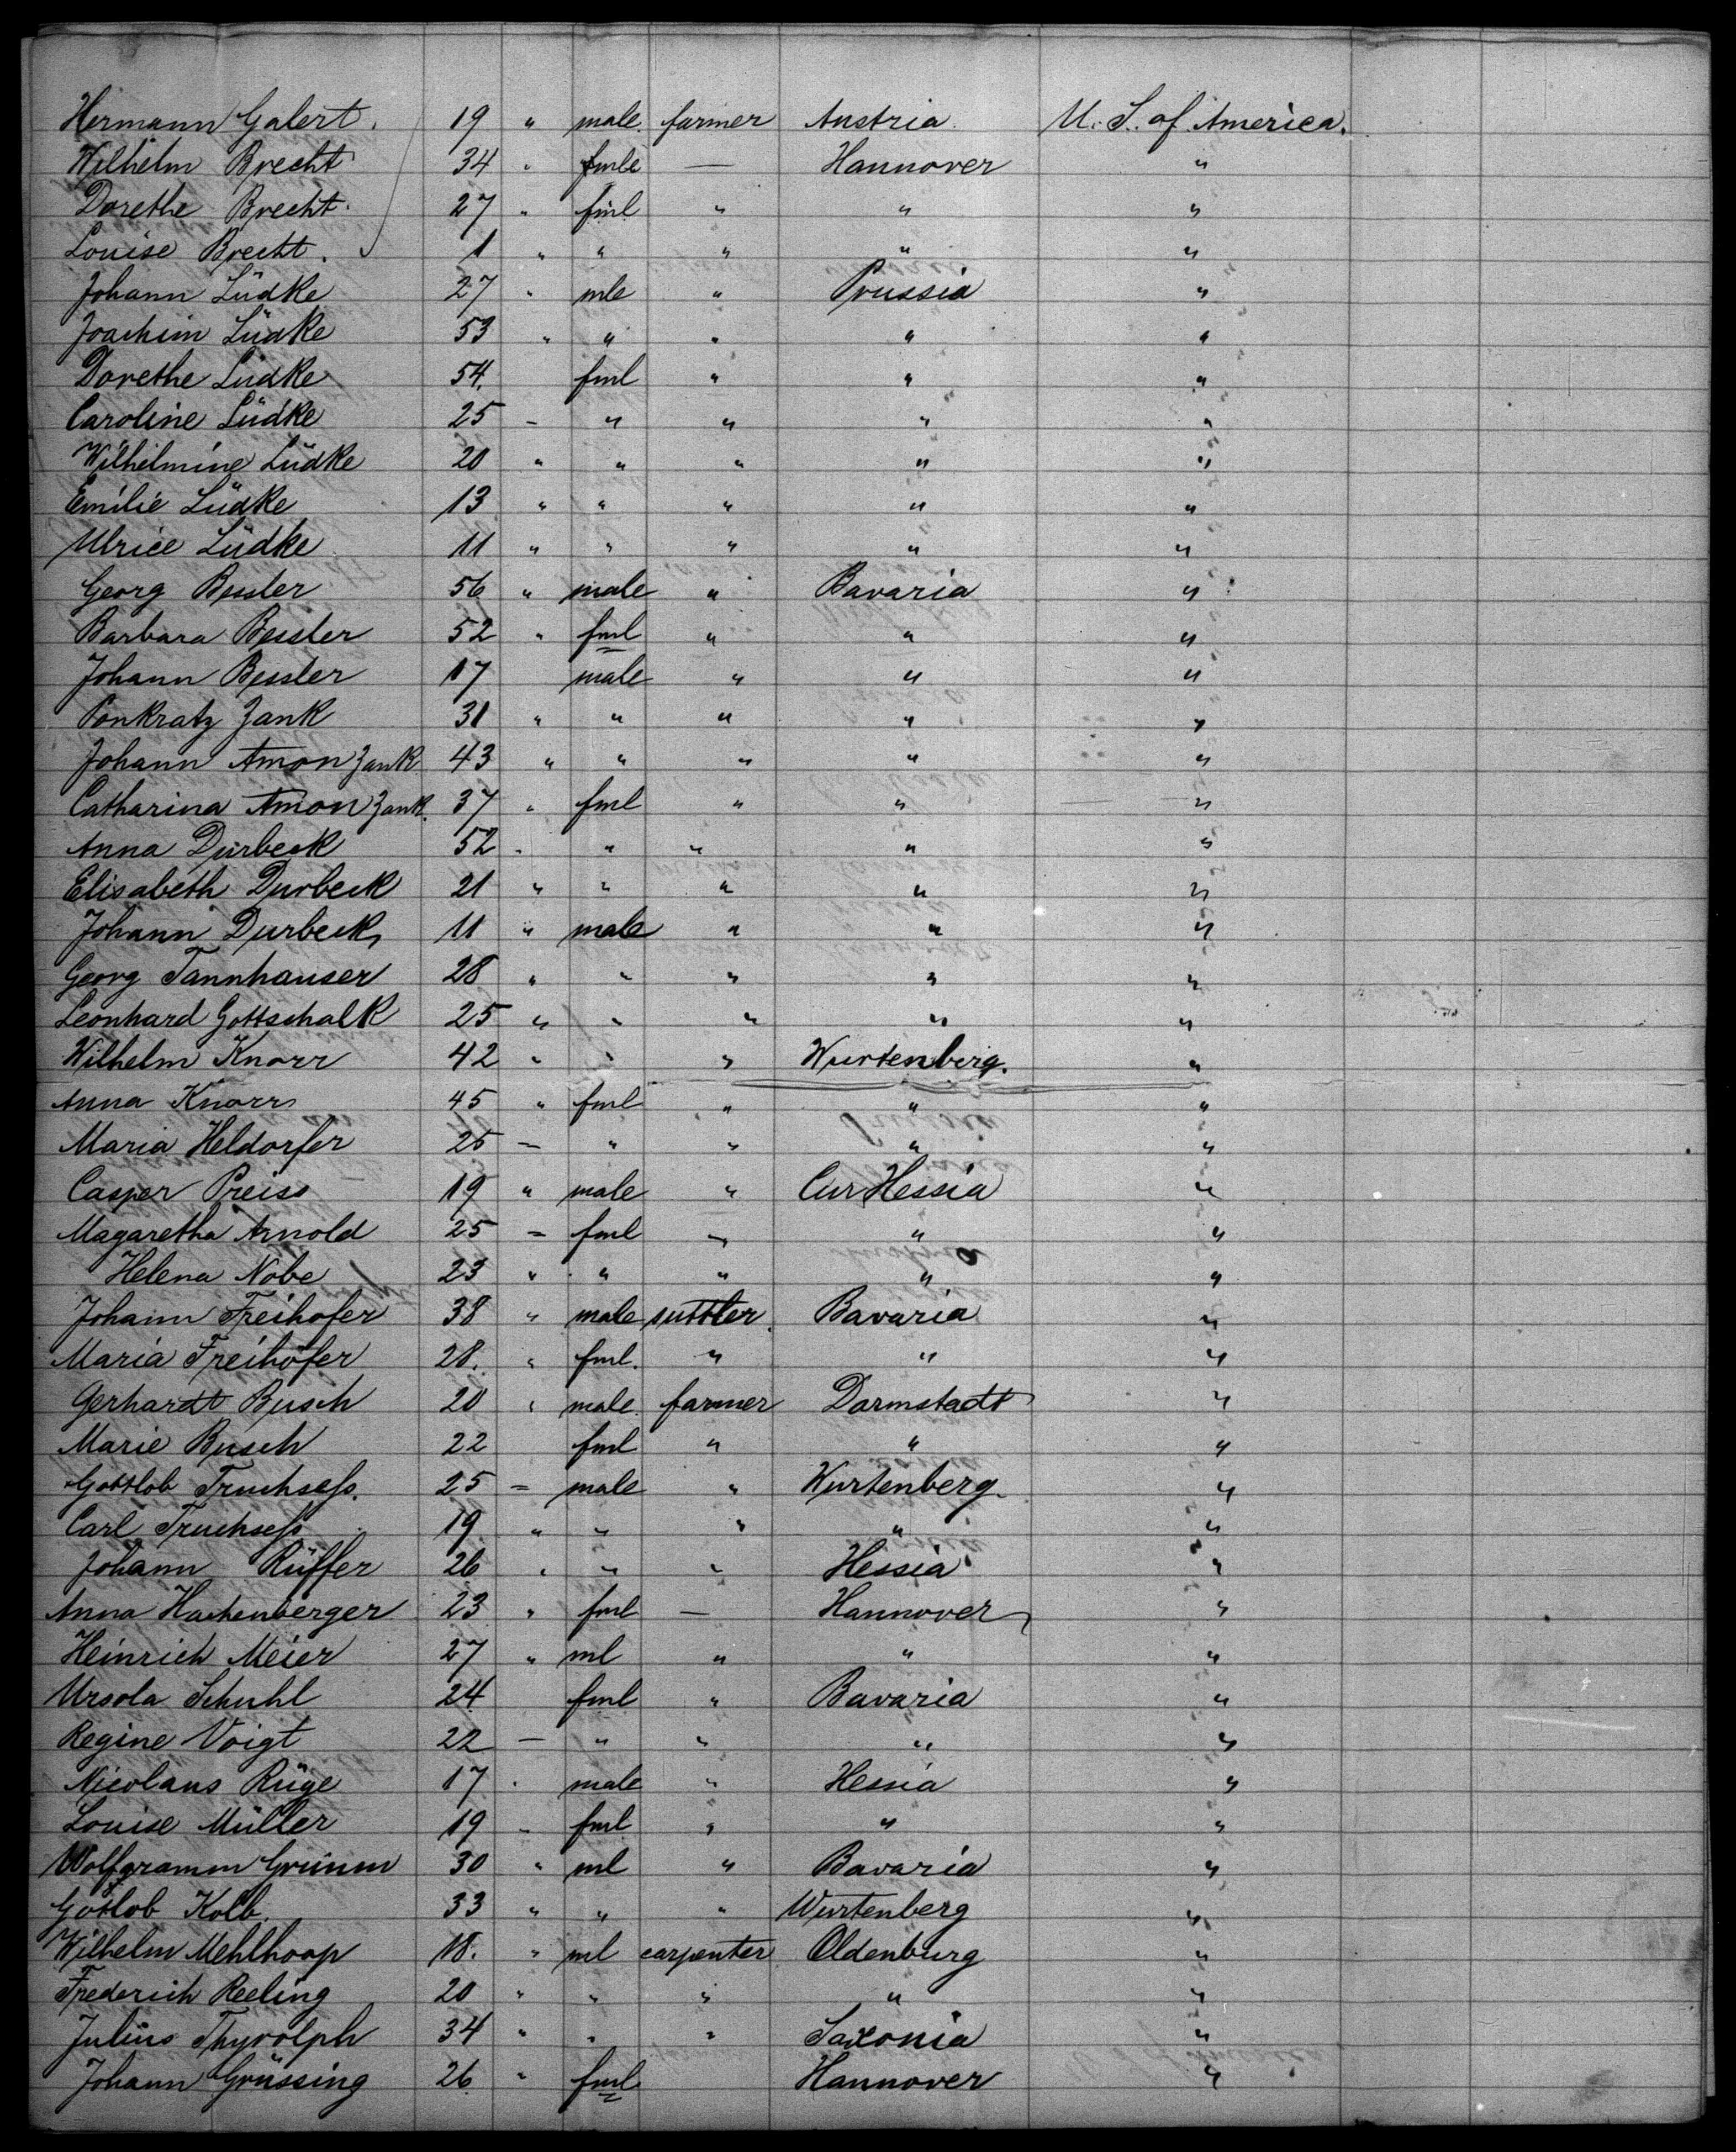 Hermann Galert. 19 " male. farmer Austria. U. S. of America.
Wilhelm Brecht 34 " fmle — Hannover "
Dorethe Brecht. 27 " fml " " "
Louise Brecht. 1 " " " " "
Johann Lüdke 27 " mle " Prussia "
Joachim Lüdke 53 " " " " "
Dorethe Lüdke 54. fml " " "
Caroline Lüdke 25 – " " " "
Wilhelmine Lüdke 20 " " " " "
Emilie Lüdke 13 " " " " "
Ulrice Lüdke 11 " " " " "
Georg Bessler 56 " male " Bavaria "
Barbara Bessler 52 " fml " " "
Johann Bessler 17 male " " "
Ponkratz Zank 31 " " " " "
Johann Amon Zank 43 " " " " "
Catharina Amon Zank. 37 " fml " " "
Anna Durbeck 52 " " " " "
Elisabeth Durbeck 21 " " " " "
Johann Durbeck 11 " male " " "
Georg Tannhauser 28 " " " " "
Leonhard Gottschalk 25 " " " " "
Wilhelm Knorr 42 " " " Wurtenberg. "
Anna Knorr 45 " fml " " "
Maria Heldorfer 25 – " " " "
Casper Preiss 19 " male " Cur Hessia "
Magaretha Arnold 25 – fml " " "
Helena Nobe 23 " " " " "
Johann Freihofer 38 " male suttler. Bavaria "
Maria Freihofer 28. " fml. " " "
Gerhardt Busch 20 " male. farmer Darmstadt "
Marie Busch 22 fml " " "
Gottlob Truchsess. 25 – male " Wurtenberg. "
Carl Truchsess 19 " " " " "
Johann Rüffer 26 " " " Hessia "
Anna Hachenberger 23 " fml — Hannover "
Heinrich Meier 27 " ml " " "
Ursola Schuhl 24 fml " Bavaria "
Regine Voigt 22 – " " " "
Nicolaus Rüge 17 " male " Hessia "
Louise Müller 19 – fml " " "
Wolfgramm Grimm 30 " ml " Bavaria "
Gottlob Kolb. 33 " " " Wurtenberg "
Wilhelm Mehlhoop 18. " ml carpenter Oldenburg "
Frederich Reeling 20 " " " " "
Julius Thyrolph 34 " " " Saxonia "
Johann Grüssing 26 " fml Hannover "